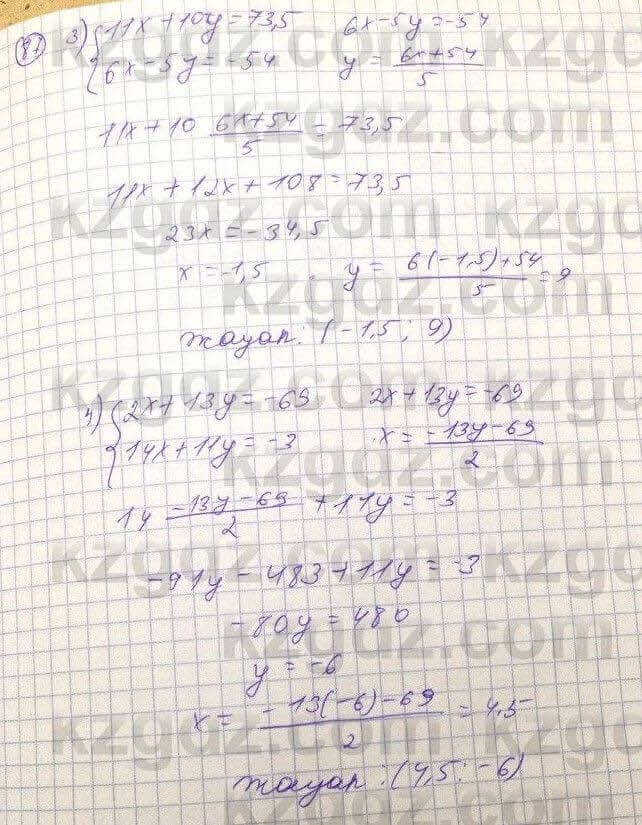 87 3) { 11x + 10y = 73,5     6x - 5y = -54
6x - 5y = -54     y = (6x + 54)/5
11x + 10 (6x + 54)/5 = 73,5
11x + 12x + 108 = 73,5
23x = -34,5
x = -1,5     y = (6(-1,5) + 54)/5 = 9
жауап: (-1,5; 9)
4) { 2x + 13y = -69     2x + 13y = -69
14x + 11y = -3     x = (-13y - 69)/2
14 (-13y - 69)/2 + 11y = -3
-91y - 483 + 11y = -3
-80y = 480
y = -6
x = (-13(-6) - 69)/2 = 4,5
жауап: (4,5; -6)
kzgdz.com